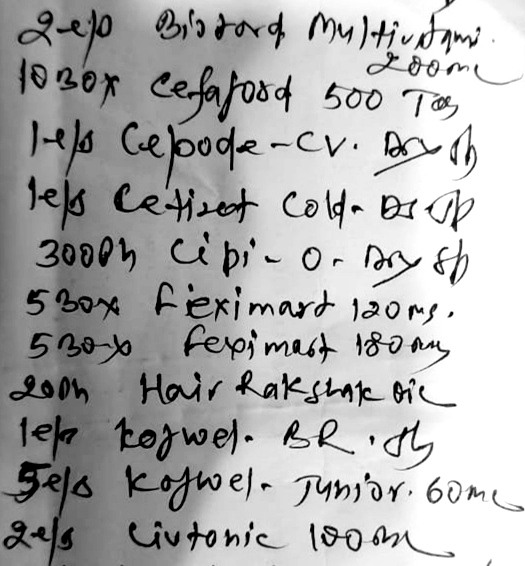 2-e/p Biotard Multivitami.
200ml
10 Box Cefaford 500 Tab
1-e/s Cepode-CV. Dry Sy
1e/s Cetizest Cold- DS
300Ph Cipi-O- Dry Sy
5 Box Feximard 120mg.
5 Box Feximast 180mg
200Ph Hair Rakshak Oil
1e/p Kofwel. BR. Sy
5e/s Kofwel- Junior. 60ml
2e/s Livtonic 100ml